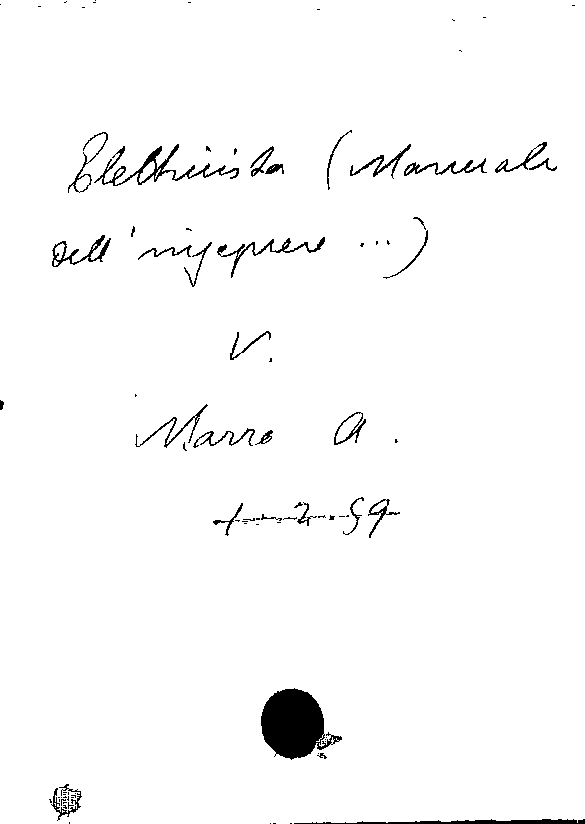 Elettricista (Manuale
dell'ingegnere ...)
V.
Marro A.
1-2.59